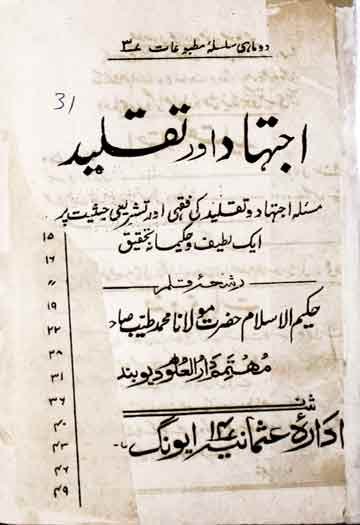 دوماہی سلسلۂ مطبوعات ۳
31
اجتہاد اور تقلید
مسئلہ اجتہاد و تقلید کی فقہی اور تشریعی حیثیت پر
ایک لطیف و حکیمانہ تحقیق
رشحۂ قلم
حکیم الاسلام حضرت مولانا محمد طیب صاحب
مہتمم دارالعلوم دیوبند
ادارۂ عثمانیہ
۱۵
۱۶
〃
۱۹
۲۲
۲۸
۳۱
۳۶
۴۰
۴۳
۴۶
۴۹